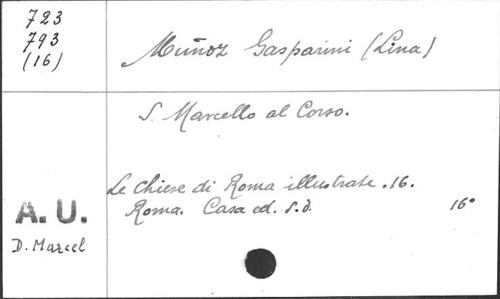 723
793
(16)
Muñoz Gasparini (Lina)
S. Marcello al Corso.
Le Chiese di Roma illustrate. 16.
Roma. Casa ed. s.d. 16°
A. U.
D. Marcel